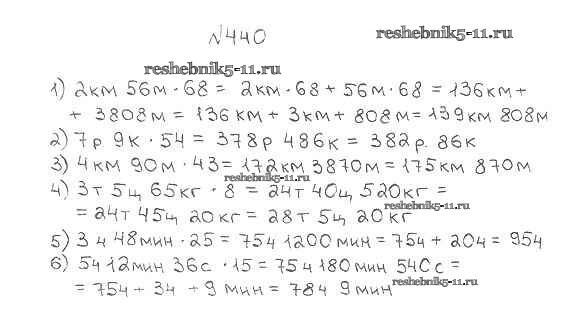 №440
reshebnik5-11.ru
reshebnik5-11.ru
1) 2км 56м · 68 = 2км · 68 + 56м · 68 = 136км +
+ 3808м = 136км + 3км + 808м = 139км 808м
2) 7р 9к · 54 = 378р 486к = 382р. 86к
3) 4км 90м · 43 = 172км 3870м = 175км 870м
reshebnik5-11.ru
4) 3т 5ц 65кг · 8 = 24т 40ц 520кг =
reshebnik5-11.ru
= 24т 45ц 20кг = 28т 5ц 20кг
5) 3ч 48мин · 25 = 75ч 1200мин = 75ч + 20ч = 95ч
6) 5ч 12мин 36с · 15 = 75ч 180мин 540с =
reshebnik5-11.ru
= 75ч + 3ч + 9мин = 78ч 9мин